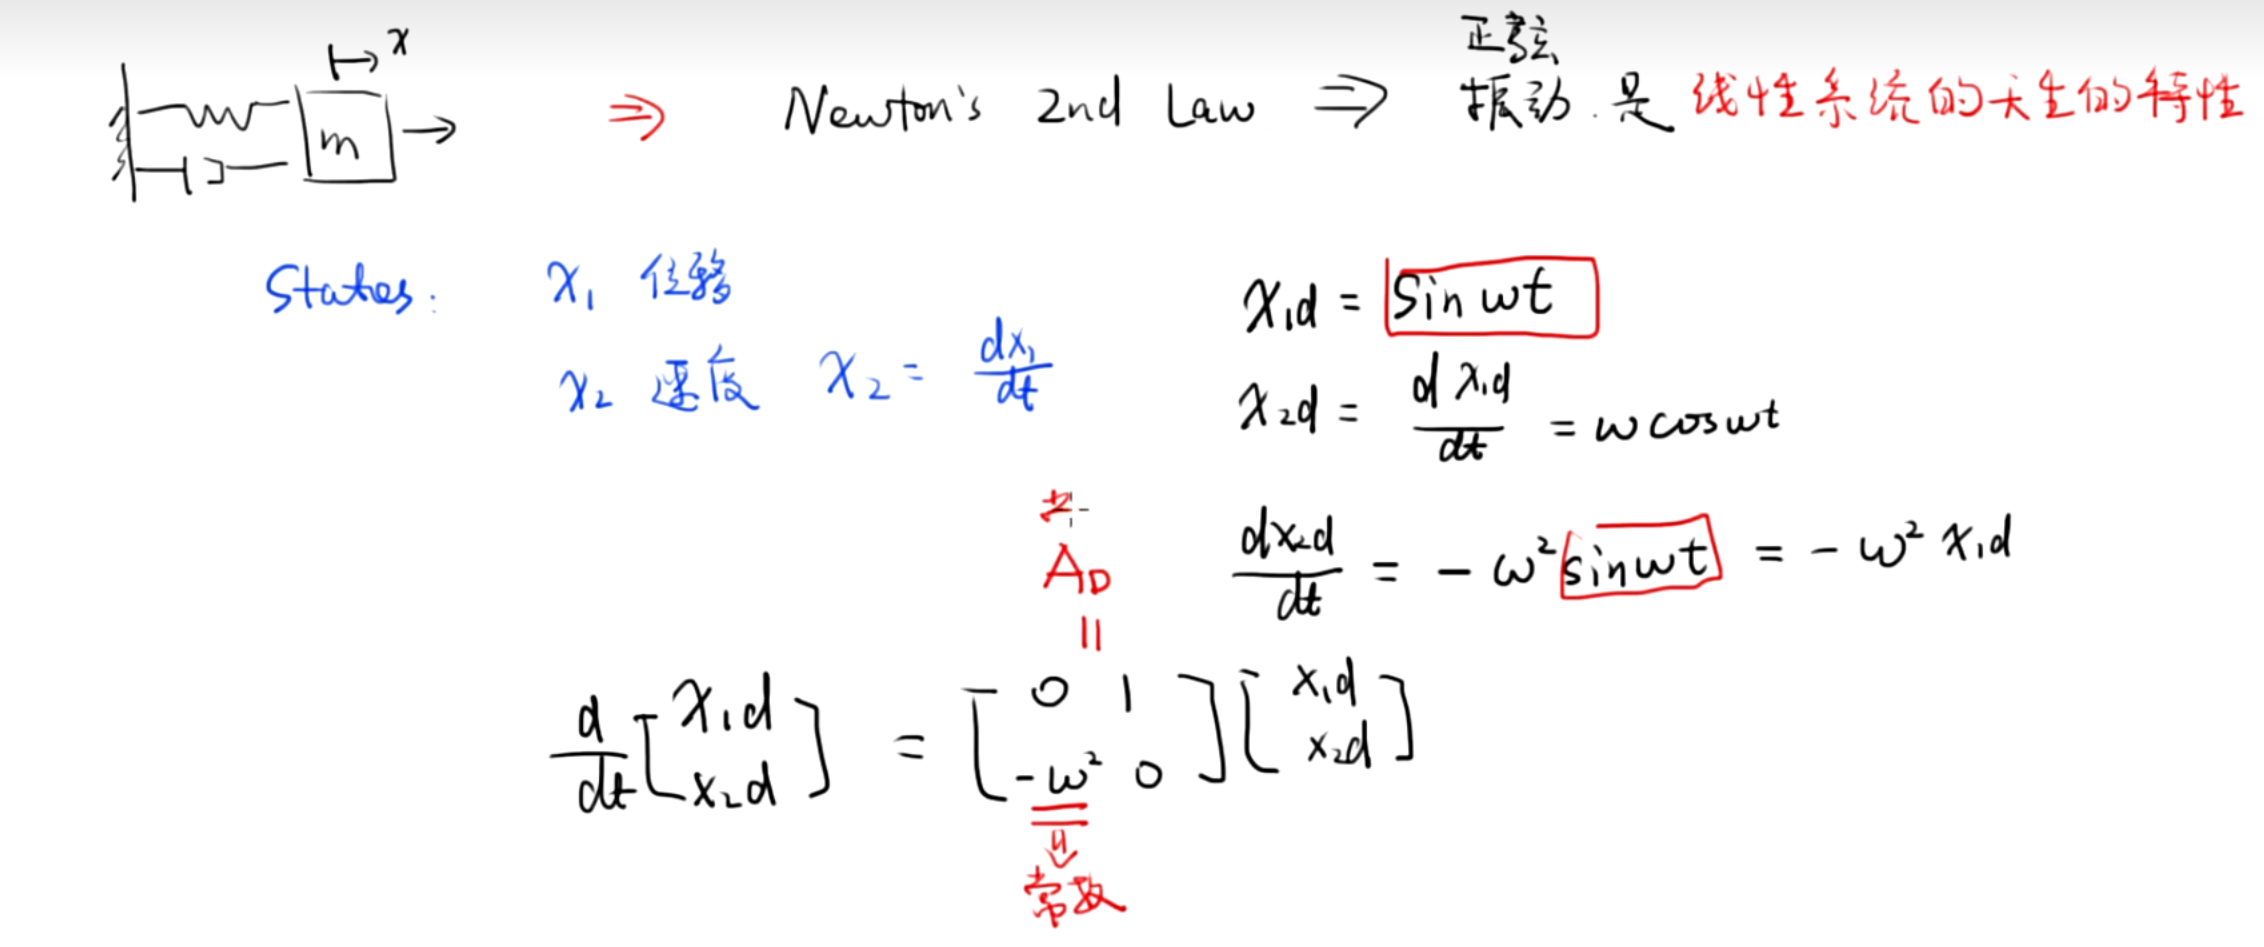 x
m
⇒ Newton's 2nd Law ⇒ 正弦
振动.是 线性系统的天生的特性
States: x₁ 位移
x₂ 速度 x₂ = dx₁/dt
x₁d = sin ωt
x₂d = d x₁d/dt = ω cos ωt
dx₂d/dt = - ω² sin ωt = - ω² x₁d
A_D
=
d/dt [x₁d x₂d] = [0 1 -ω² 0] [x₁d x₂d]
常数